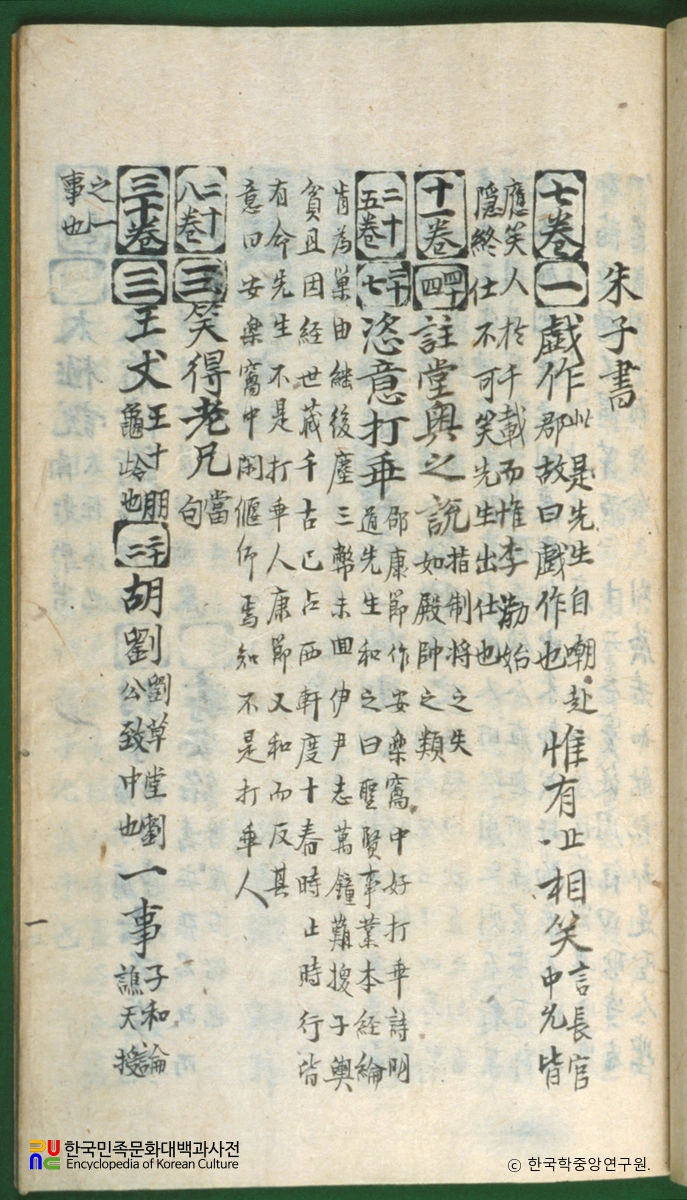 朱子書
七卷 一 戱作 此是先生自嘲赴
郡故曰戱作也 惟有止相笑 言長官
中允皆
應笑人於千載而惟李勣始
隱終仕不可笑先生出仕也
十一卷 四十四 註堂奧之說 指制將之失
如殿帥之類
二十五卷 二十七 恣意打乖 邵康節作安樂窩中好打乖詩明
道先生和之曰聖賢事業本経綸
肯為巢由継後塵三幣未回伊尹志萬鐘難換子輿
貧且因経世蔵千古已占西軒度十春時止時行皆
有命先生不是打乖人康節又和而反其
意曰安楽窩中閑偃仰焉知不是打乖人
二十八卷 三 笑得老兄 當
句
三十卷 三 王丈 王十朋
龜齡也 二十二 胡劉 劉草堂劉
公致中也 一事 子和論
譙天授
之一
事也
一
한국민족문화대백과사전
Encyclopedia of Korean Culture
© 한국학중앙연구원.